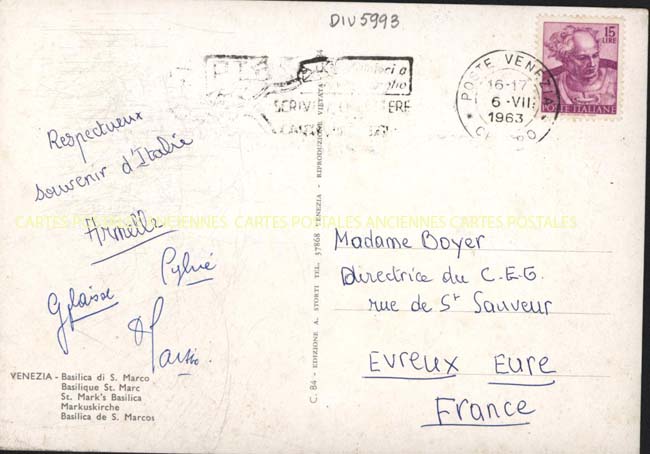 DIV5993
15
LIRE
POSTE ITALIANE
POSTE VENEZIA
16-17
6-VII
1963
SCRIVETE
Respectueux
souvenir d'Italie
Armelle
CARTES POSTALES ANCIENNES CARTES POSTALES ANCIENNES CARTES POSTALES
Madame Boyer
Directrice du C.E.G.
rue de St Sauveur
Evreux Eure
France
VENEZIA - Basilica di S. Marco
Basilique St. Marc
St. Mark's Basilica
Markuskirche
Basilica de S. Marcos
C. 84 - EDIZIONE A. STORTI TEL. 37868 VENEZIA - RIPRODUZIONE VIETATA